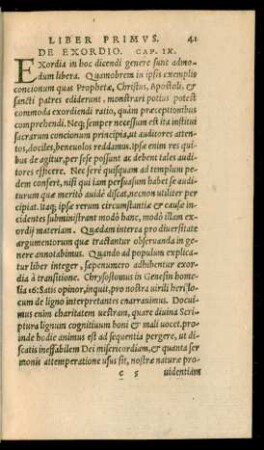 LIBER PRIMVS. 41
DE EXORDIO. CAP. IX.
EXordia in hoc dicendi genere sunt admo-
dum libera. Quamobrem in ipsis exemplis
concionum quas Prophetæ, Christus, Apostoli, &
sancti patres ediderunt, monstrari potius potest
commoda exordiendi ratio, quàm præceptionibus
comprehendi. Neq; semper necessum est ita institui
sacrarum concionum principia, ut auditores atten-
tos, dociles, beneuolos reddamus. ipsæ enim res qui
bus de agitur, per sese possunt ac debent tales audi-
tores efficere. Nec ferè quisquam ad templum pe-
dem confert, nisi qui iam persuasum habet se audi-
turum quæ meritò audiē discat, necnon utiliter per
cipiat. itaq; ipsæ rerum circumstantiæ & causæ in-
cidentes subministrant modò hanc, modò illam ex-
ordij materiam. Quædam interea pro diuersitate
argumentorum quæ tractantur obseruanda in ge-
nere annotabimus. Quando ad populum explica-
tur liber integer, sæpenumero adhibentur exor-
dia à transitione. Chrysostomus in Genesin home-
lia 16: Satis opinor, inquit, pro nostra uirili heri locum
de ligno interpretantes enarrauimus. Docui-
mus enim charitatem uestram, quare diuina Scri-
ptura lignum cognitiuum boni & mali uocet. pro-
inde hodie animus est ad sequentia pergere, ut di-
scatis ineffabilem Dei misericordiam, & quanta ser
monis attemperatione usus sit, nostræ naturæ pro-
c 5 uidentiam